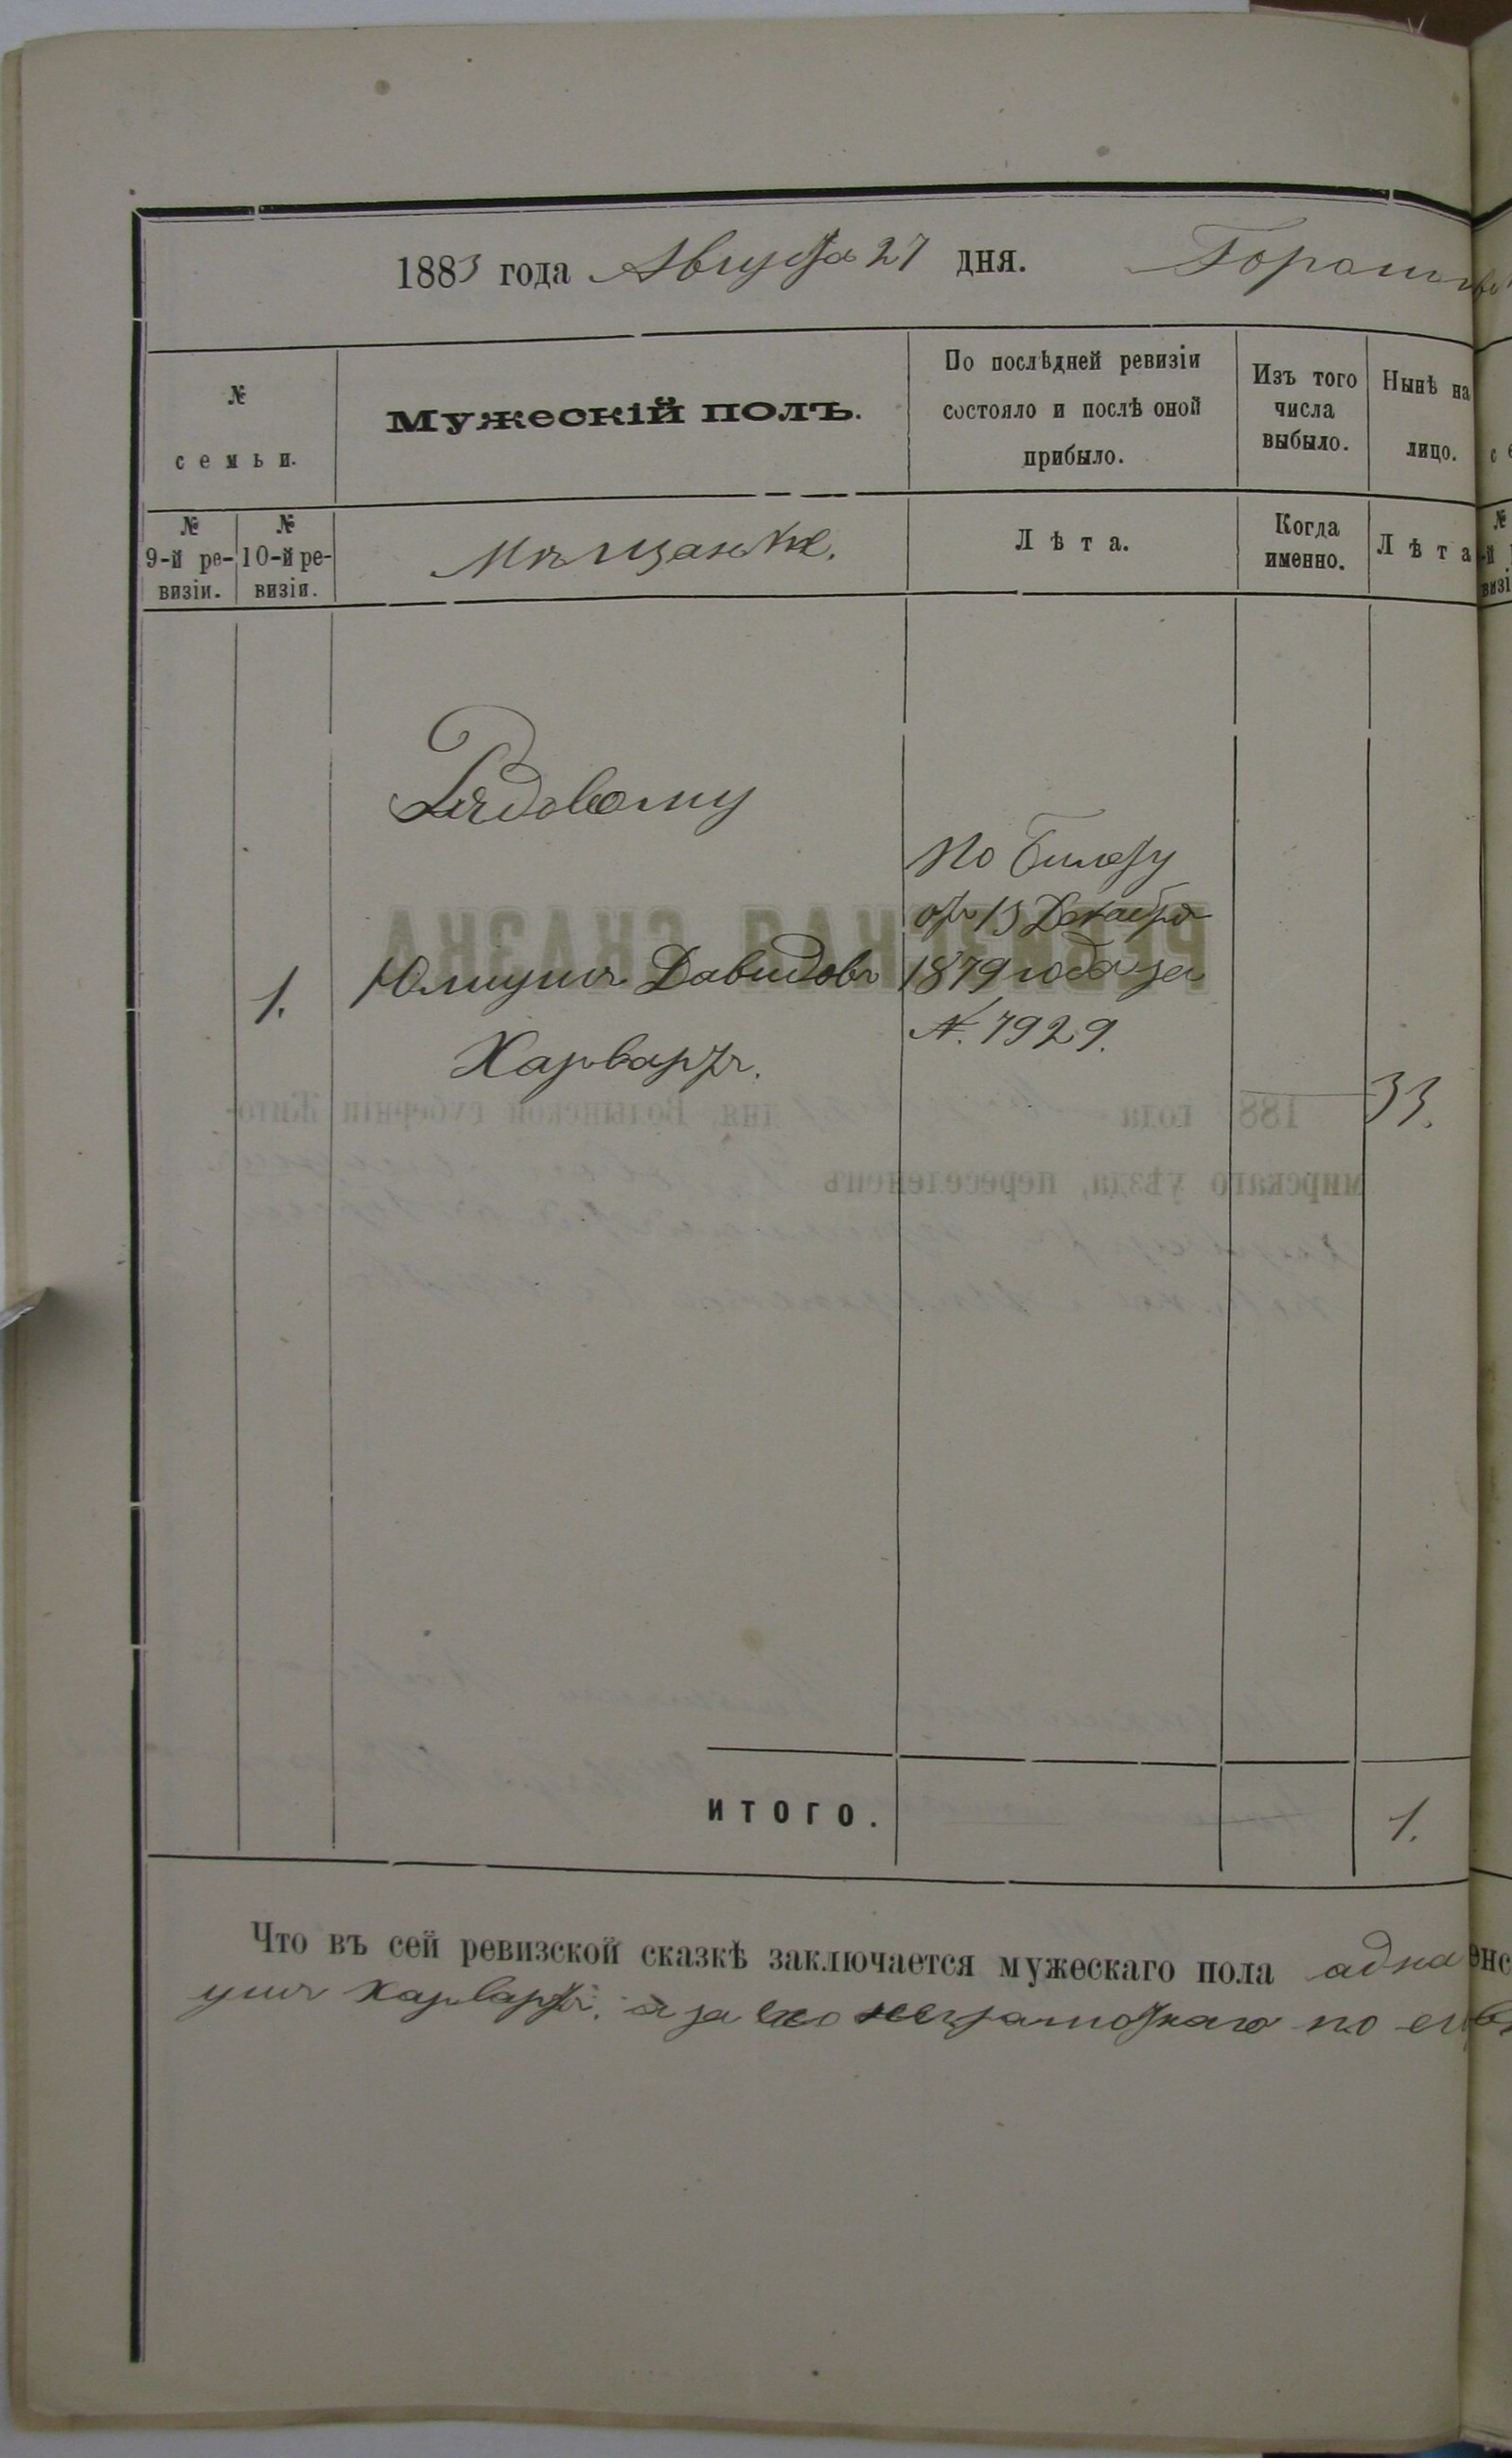 1883 года Августа 27 дня.
№
семьи.
Мужескій полъ.
По послѣдней ревизіи
состояло и послѣ оной
прибыло.
Изъ того
числа
выбыло.
Нынѣ на
лицо.
№
9-й ре-
визіи.
№
10-й ре-
визіи.
Мѣщанѣе.
Лѣта.
Когда
именно.
Лѣта
Рядовому
1. Юлиушъ Давидовъ
Харвартъ.
По билету
отъ 13 Декабря
1879 года за
№. 7929.
33.
ИТОГО.
1.
Что въ сей ревизской сказкѣ заключается мужескаго пола адна
ушъ Харвартъ. а за его неграмотнаго по